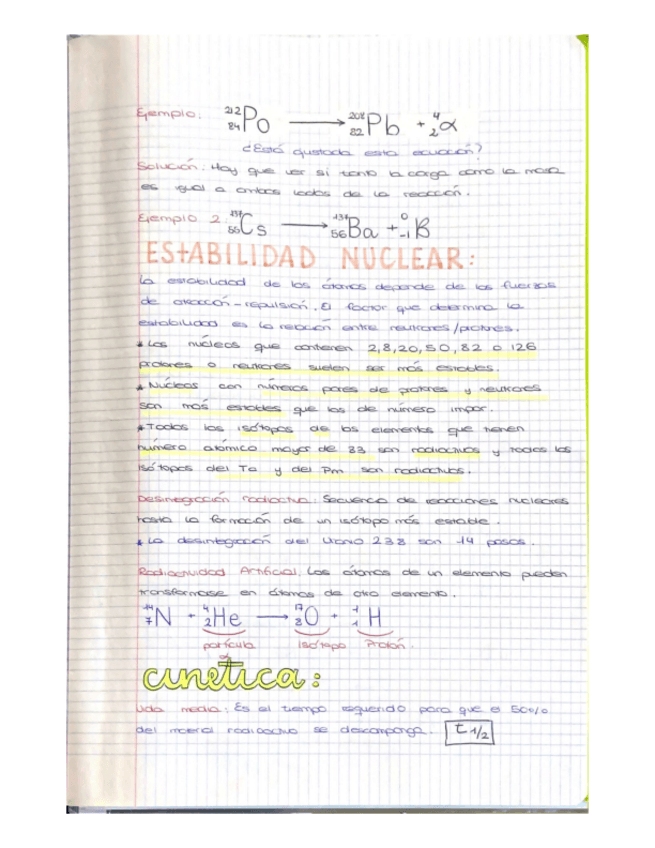 Ejemplo: ²¹²₈₄Po → ²⁰⁸₈₂Pb + ⁴₂α
¿Está ajustada esta ecuación?
Solución: Hay que ver si tanto la carga como la masa
es igual a ambos lados de la reacción.
Ejemplo 2: ¹³⁷₅₅Cs → ¹³⁷₅₆Ba + ⁰₋₁β
EStABILIDAD NUCLEAR:
La estabilidad de los átomos depende de las fuerzas
de atracción-repulsión. El factor que determina la
estabilidad es la relación entre neutrones/protones.
* Los núcleos que contienen 2,8,20,50,82 o 126
protones o neutrones suelen ser más estables.
* Núcleos con números pares de protones y neutrones
son más estables que los de número impar.
* Todos los isótopos de los elementos que tienen
número atómico mayor de 83 son radiactivos y todos los
isótopos del Tc y del Pm son radiactivos.
Desintegración radiactiva: Secuencia de reacciones nucleares
hasta la formación de un isótopo más estable.
* La desintegración del Urano 238 son 14 pasos.
Radioactividad Artificial. Los átomos de un elemento pueden
transformarse en átomos de otro elemento.
¹⁴₇N + ⁴₂He → ¹⁷₈O + ¹₁H
partícula α isótopo Protón.
cinética:
Vida media: Es el tiempo requerido para que el 50%
del material radioactivo se descomponga. t 1/2